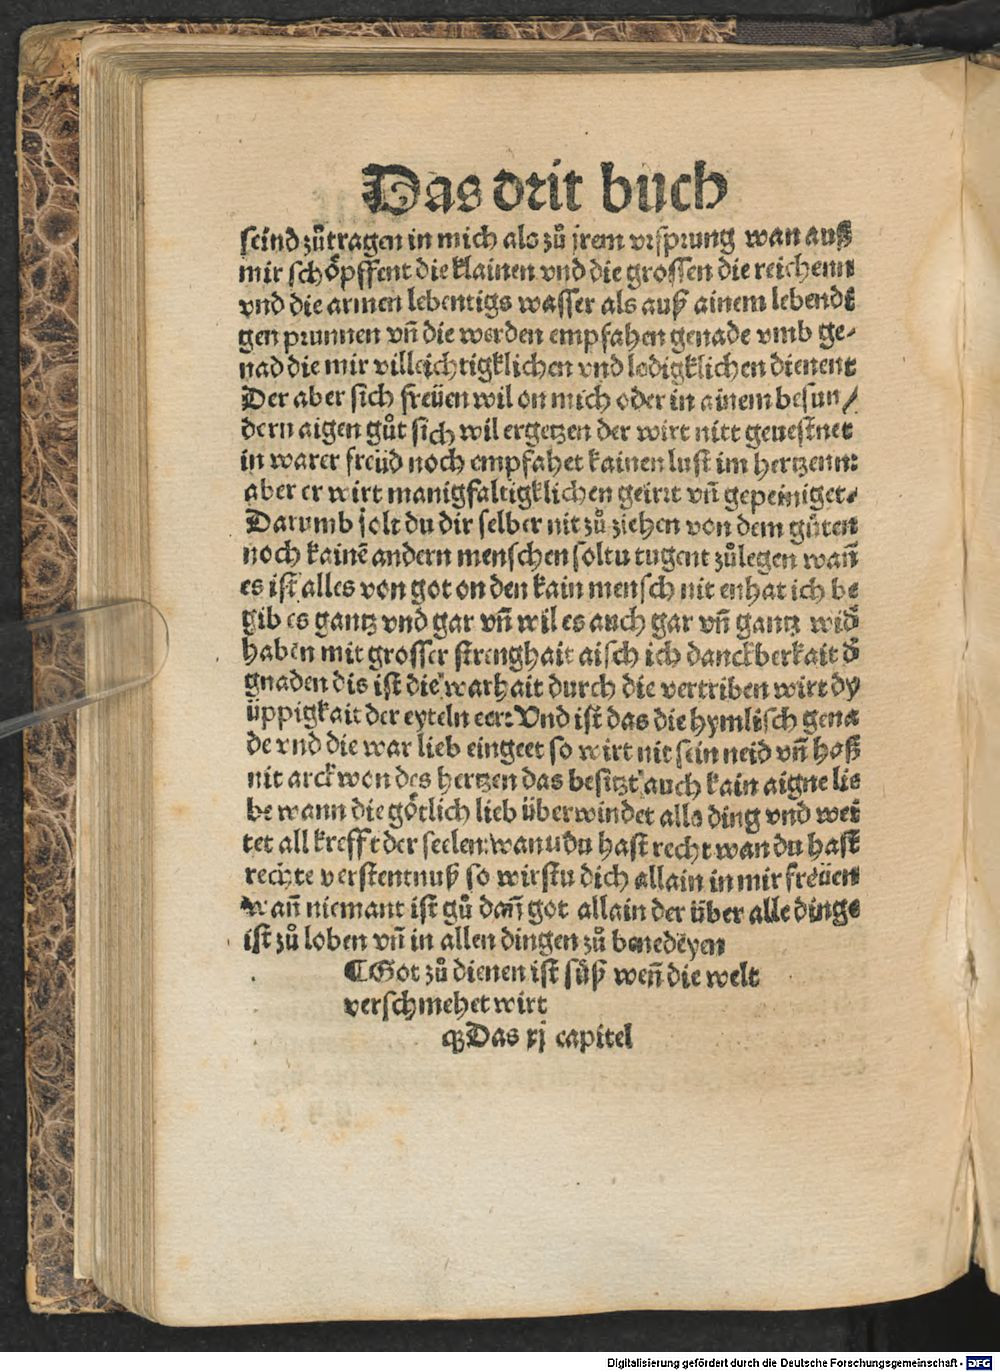 Das drit buch
seind zůtragen in mich als zů jrem vrsprung wan auß
mir schöpffent die klainen vnd die grossen die reichenn
vnd die armen lebentigs wasser als auß ainem lebendi
gen prunnen vñ die werden empfahen genade vmb ge⸗
nad die mir villeichtigklichen vnd ledigklichen dienent
Der aber sich freüen wil on mich oder in ainem besun/
dern aigen gůt sich wil ergetzen der wirt nitt geuestnet
in warer freüd noch empfahet kainen lust im hertzenn:
aber er wirt manigfaltigklichen geirrt vñ gepeiniget.
Darumb solt du dir selber nit zů ziehen von dem gůten
noch kainē andern menschen soltu tugent zůlegen wañ
es ist alles von got on den kain mensch nit enhat ich be
gib es gantz vnd gar vñ wil es auch gar vñ gantz wid̄
haben mit grosser strenghait aisch ich danckberkait d̄
gnaden dis ist die warhait durch die vertriben wirt dy
üppigkait der eyteln eer: Vnd ist das die hymlisch gena
de vnd die war lieb eingeet so wirt nit sein neid vñ haß
nit arckwon des hertzen das besitzt auch kain aigne lie
be wann die götlich lieb überwindet alle ding vnd wei
tet all krefft der seelen: wann du hast recht wan du hast
rechte verstentnuß so wirstu dich allain in mir freüen
wañ niemant ist gů dañ got allain der über alle dinge
ist zů loben vñ in allen dingen zů benedeyen
¶ Got zů dienen ist süß weñ die welt
verschmehet wirt
Das xj capitel
Digitalisierung gefördert durch die Deutsche Forschungsgemeinschaft - DFG